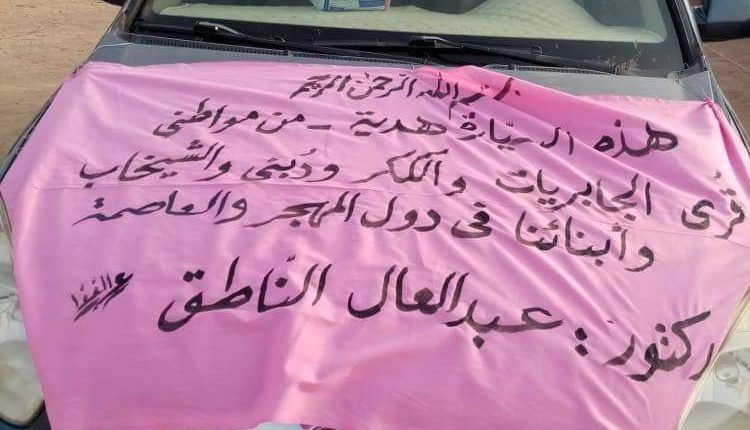 بسم الله الرحمن الرحيم
هذه السيّارة هدية - من مواطني
قُرى الجابريات والككر ودُبنى والشيخاب
وأبنائنا في دول المهجر والعاصمة
دكتور : عبدالعال النّاطق